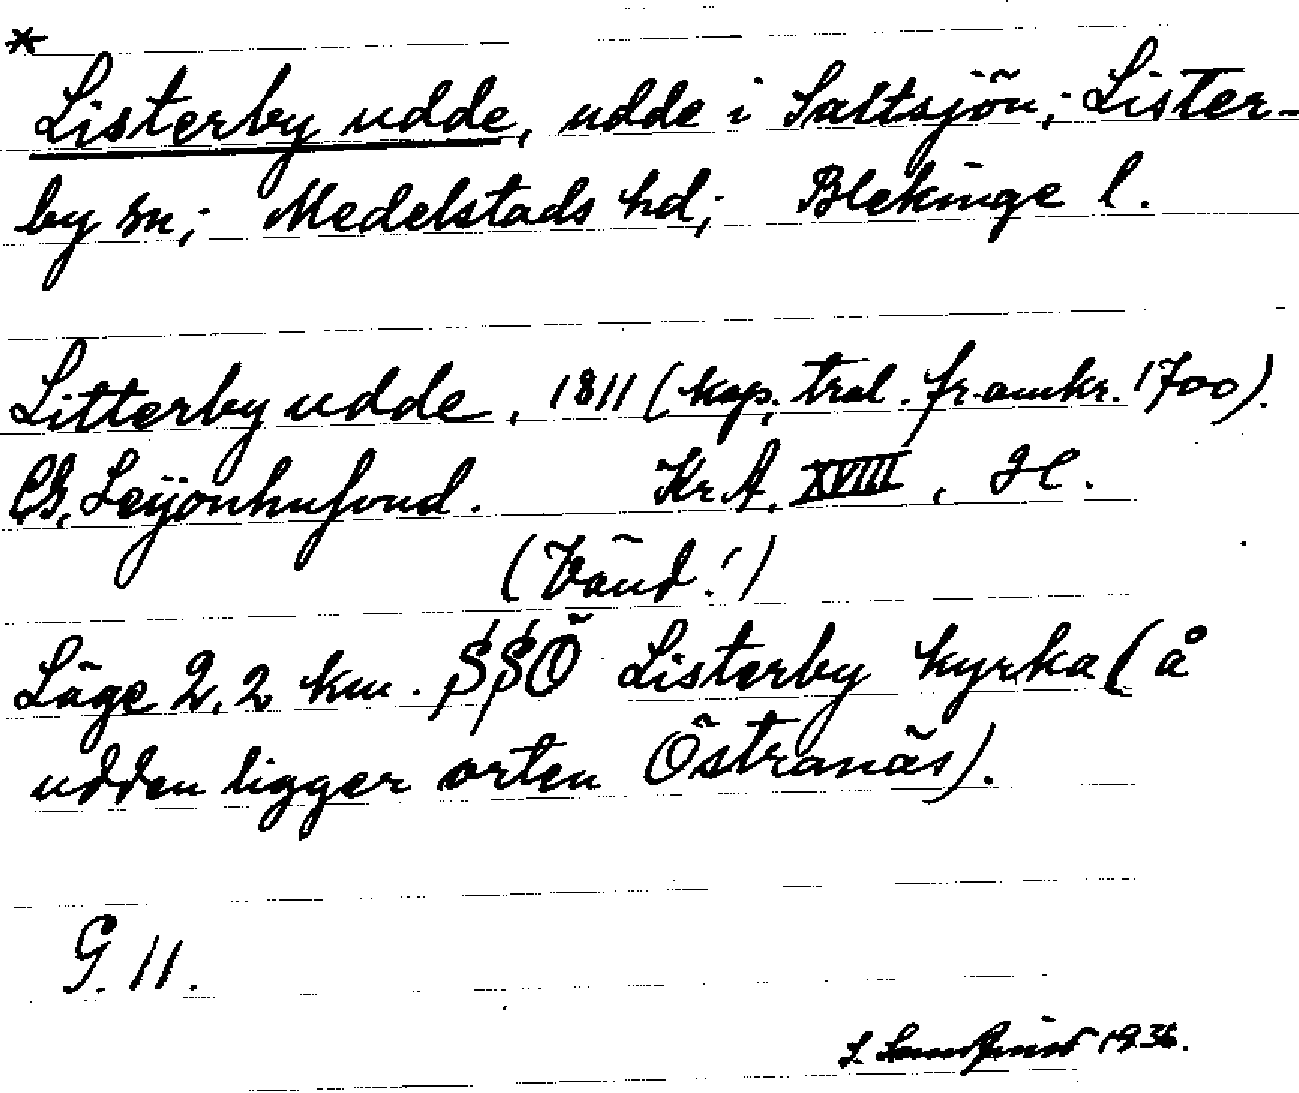 *
Listerby udde, udde i Saltsjön; Lister-
by sn; Medelstads hd; Blekinge l.
Litterby udde, 1811 (kop. tral. framkr. 1700).
CG. Leijonhufvud. Kr A, XVIII, H.
(Vänd!)
Läge 2,2 km. SSÖ Listerby kyrka (å
udden ligger orten Östranäs).
G. 11.
1936.